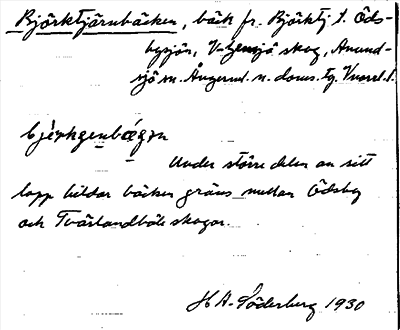 Björktjärnbäcken, bäck fr. Björktj. t. Öds-
bysjön, skog, Anund-
sjö sn. Ångerml. n. doms. tg. Vnorrl. l.
Under större delen av sitt
lopp bildar bäcken gräns mellan Ödsby
och Tvärlandböle skogar.
H A. Söderberg 1930